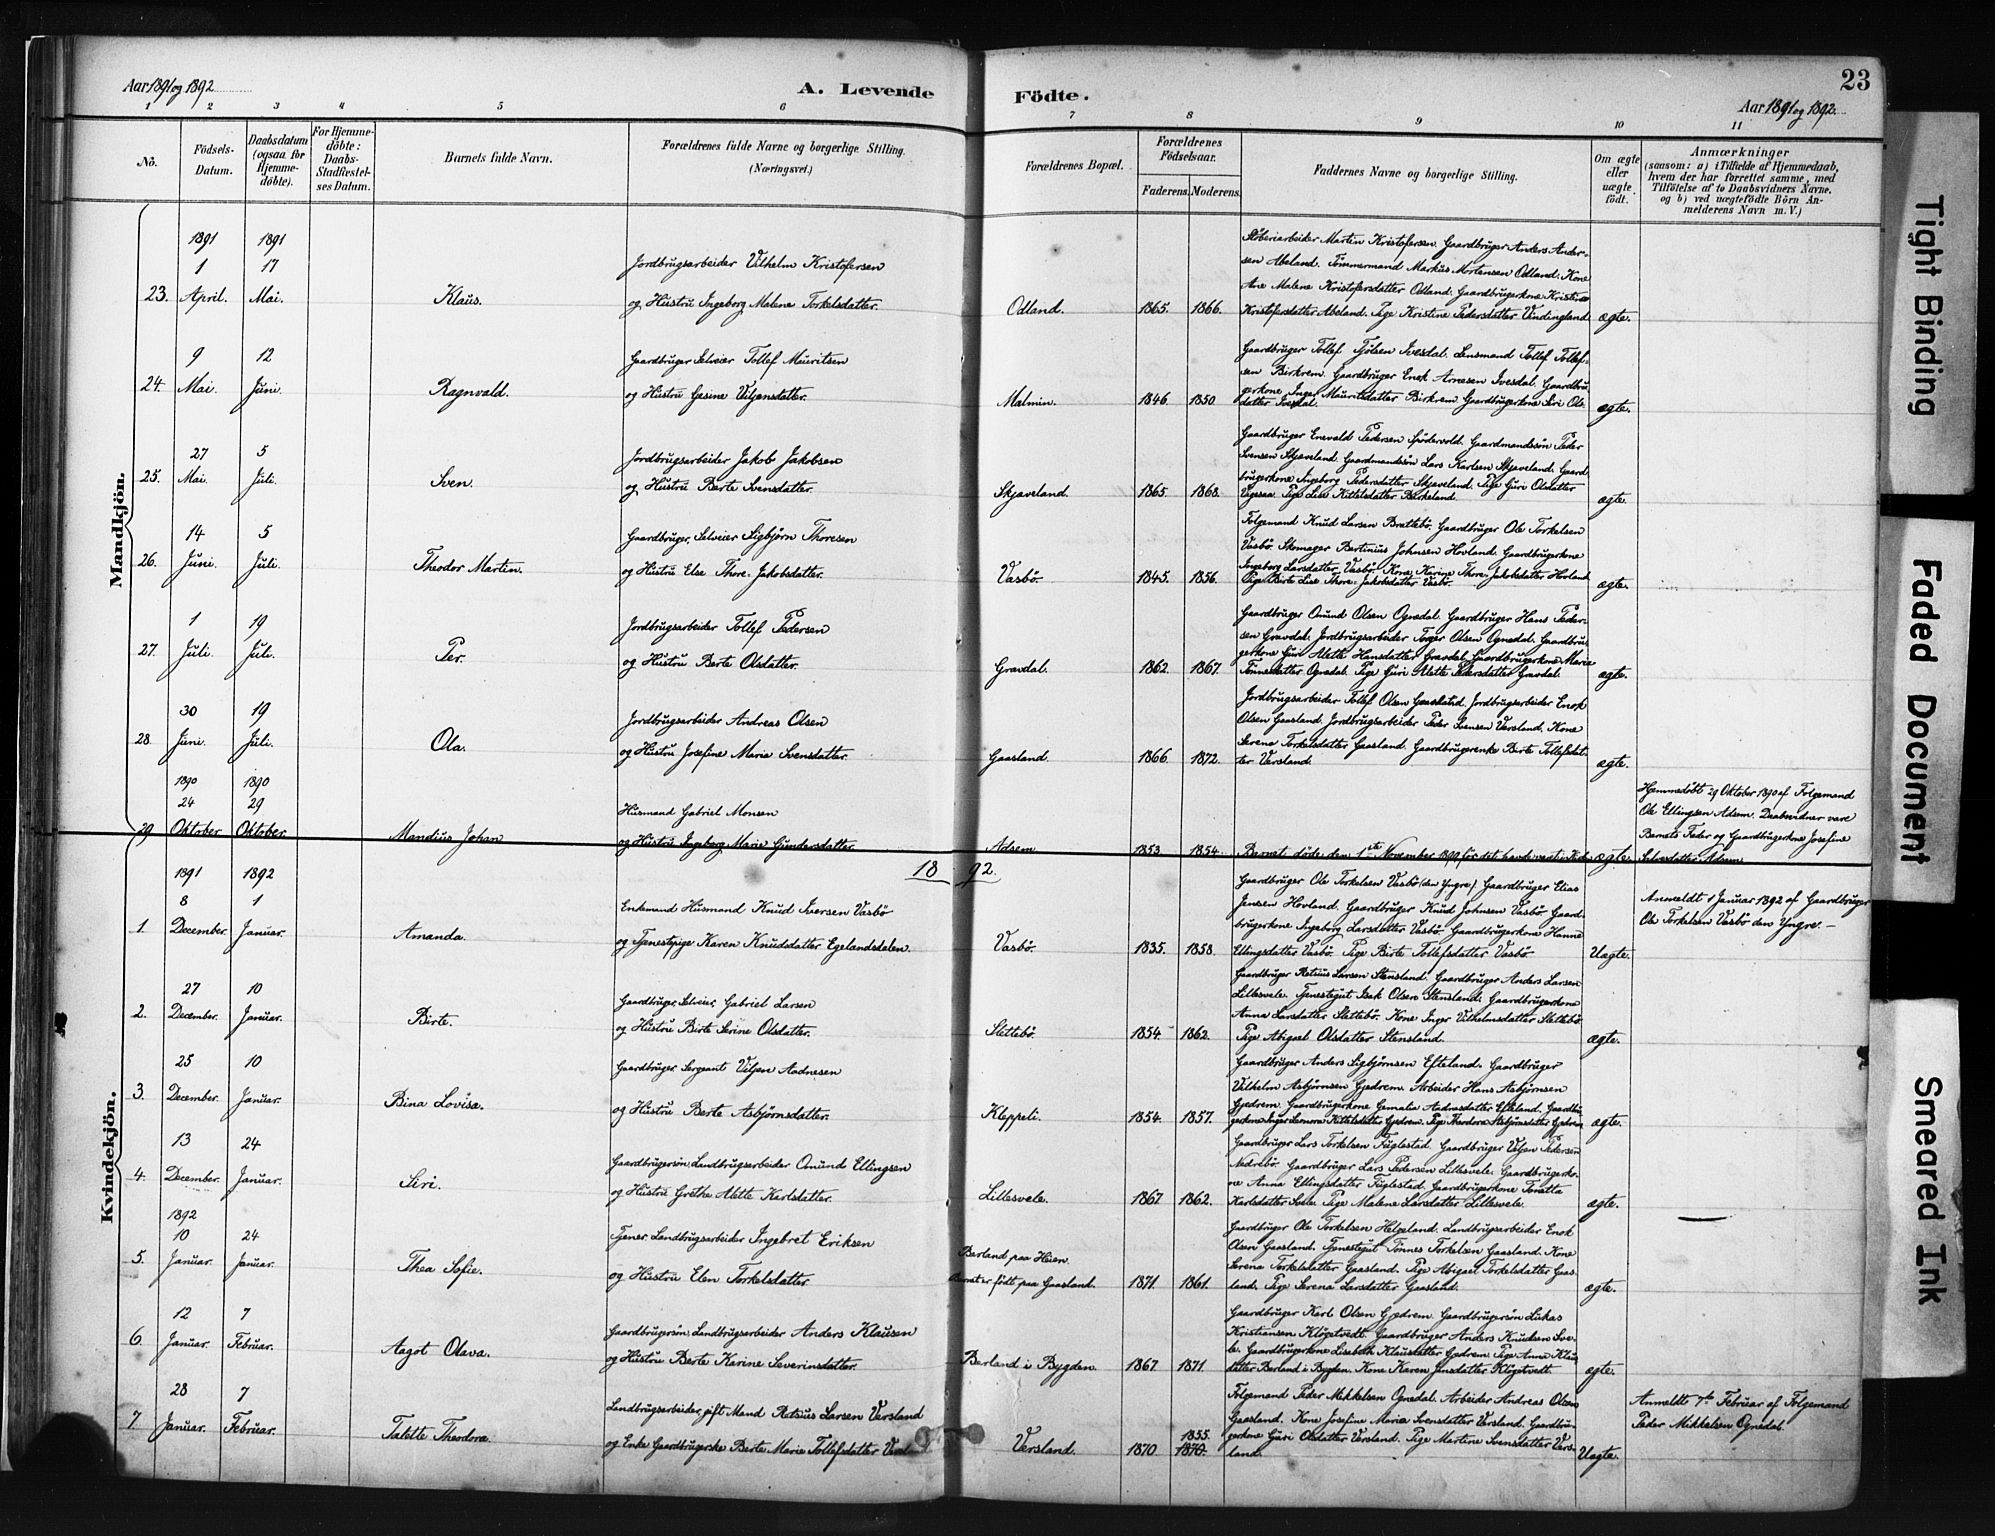 Aar 1891 og 1892
A. Levende
Födte.
23
Aar 1891 og 1892.
1 2 3 4 5 6 7 8 9 10 11
No.
Födsels-Datum.
Daabsdatum (ogsaa for Hjemme-döbte).
For Hjemme-döbte: Daabs-Stadfæstel-ses Datum.
Barnets fulde Navn.
Forældrenes fulde Navne og borgerlige Stilling.
(Næringsvei.)
Forældrenes Bopæl.
Forældrenes Födselsaar.
Faderens. Moderens.
Faddernes Navne og borgerlige Stilling.
Om ægte eller uægte födt.
Anmærkninger
(saasom: a) i Tilfælde af Hjemmedaab,
hvem der har forrettet samme, med
Tilföielse af to Daabsvidners Navne,
og b) ved uægtefödte Börn An-
melderens Navn m. V.)
Mandkjön.
1891 1891
1 17
23. April. Mai.
Klaus.
Jordbrugsarbeider Vilhelm Kristofersen
og Hustru Ingeborg Malene Torkelsdatter.
Odland. 1865. 1866.
Støberiarbeider Martin Kristofersen. Gaardbruger Anders Ander-
sen Abeland. Tömmermand Markus Mortensen Odland. Kone
Ane Malene Kristofersdatter Odland. Gaardbrugerkone Kristine
Kristofersdatter Abeland. Pige Kristine Pedersdatter Vindingland
ægte.
9 12
24. Mai. Juni.
Ragnvald.
Gaardbruger Selveier Tollef Mauritsen
og Hustru Gesine Viljensdatter.
Malmin. 1846. 1850
Gaardbruger Tollef Tjölsen Ivesdal. Lensmand Tollef Tollef-
sen Birkrem. Gaardbruger Enok Arnesen Ivesdal. Gaardbru-
gerkone Inger Mauritsdatter Birkrem. Gaardbrugerkone Siri Ols-
datter Ivesdal.
ægte.
27 5
25. Mai. Juli.
Sven.
Jordbrugsarbeider Jakob Jakobsen
og Hustru Berte Svensdatter.
Skjæveland. 1865. 1868.
Gaardbruger Enevald Pedersen Spödervold. Gaardmandssön Peder
Svensen Skjæveland. Gaardmandssön Lars Karlsen Skjæveland. Gaard-
brugerkone Ingeborg Pedersdatter Skjæveland. Pige Guri Olsdatter
Vigesaa. Pige Lise Kittelsdatter Birkeland.
ægte.
14 5
26. Juni. Juli.
Theodor Martin.
Gaardbruger, Selveier Sigbjörn Thoresen
og Hustru Else Thore-Jakobsdatter.
Vasbö. 1845. 1856.
Folgemand Knud Larsen Brattebö. Gaardbruger Ole Torkelsen
Vasbö. Skomager Bertinius Johnsen Hovland. Gaardbrugerkone
Ingeborg Larsdatter Vasbö. Kone Karine Thore-Jakobsdatter Hovland
Pige Birte Lise Thore-Jakobsdatter Vasbö.
ægte.
1 19
27. Juli. Juli.
Per.
Jordbrugsarbeider Tollef Pedersen
og Hustru Berte Olsdatter.
Gravdal. 1862. 1867.
Gaardbruger Omund Olsen Ognedal. Gaardbruger Hans Peder-
sen Gravdal. Jordbrugsarbeider Torger Olsen Ognedal. Gaardbru-
gerkone Guri Alette Hansdatter Gravdal. Gaardbrugerkone Marie
Tönnesdatter Ognedal. Pige Guri Alette Pedersdatter Gravdal.
ægte.
30 19
28. Juni. Juli.
Ola.
Jordbrugsarbeider Andreas Olsen
og Hustru Josefine Maria Svensdatter.
Gaasland. 1866 1872.
Jordbrugsarbeider Tollef Olsen Gaasland. Jordbrugsarbeider Enok
Olsen Gaasland. Jordbrugsarbeider Peder Svensen Versland. Kone
Serena Torkelsdatter Gaasland. Gaardbrugerenke Birte Tollefsdat-
ter Versland.
ægte.
1890 1890
24 29
29 Oktober Oktober.
Mandius Johan
Husmand Gabriel Monsen
og Hustru Ingeborg Marie Gundersdatter
Adsem. 1853 1854.
Barnet döde den 1ste November 1890 för det havde været i Kirke
ægte.
Hjemmedöbt 29 Oktober 1890 af Folgemand
Ole Ellingsen Adsem. Daabsvidner vare
Barnets Fader og Gaardbrugerkone Josefine
Salvedatter Adsem.
1892.
Kvindekjön.
1891 1892
8 1
1. December. Januar.
Amanda.
Enkemand Husmand Knud Iversen Vasbö
og Tjenestepige Karen Knudsdatter Egelandsdalen.
Vasbö. 1835. 1858.
Gaardbruger Ole Torkelsen Vasbö (den Yngre) Gaardbruger Elias
Jensen Hovland. Gaardbruger Knud Johnsen Vasbö. Gaard-
brugerkone Ingeborg Larsdatter Vasbö. Gaardbrugerkone Hanne
Ellingsdatter Vasbö. Pige Birte Tollefsdatter Vasbö
Uægte.
Anmeldt 1 Januar 1892 af Gaardbruger
Ole Torkelsen Vasbö den Yngre.-
27 10
2. December. Januar.
Birte.
Gaardbruger, Selveier, Gabriel Larsen
og Hustru Birte Serine Olsdatter.
Slettebö. 1854 1862.
Gaardbruger Retsius Larsen Stensland. Gaardbruger Anders Larsen
Lillesvele. Tjenestegut Isak Olsen Stensland. Gaardbrugerkone
Anna Larsdatter Slettebö. Kone Inger Vilhelmsdatter Slettebö
Pige Abigael Olsdatter Stensland.
ægte.
25 10
3. December. Januar.
Bina Lovisa.
Gaardbruger, Sergeant Viljen Aadnesen
og Hustru Berte Asbjörnsdatter.
Kleppeli. 1854. 1857.
Gaardbruger Anders Sigbjörnsen Efteland. Gaardbruger
Vilhelm Asbjörnsen Gjedrem. Arbeider Hans Asbjörnsen
Gjedrem. Gaardbrugerkone Gemalia Aadnesdatter Efteland. Gaardbru-
gerkone Inger Lenora Kittelsdatter Gjedrem. Pige Theodora Asbjörnsdatter Gjedrem
ægte.
13 24
4. December. Januar.
Siri.
Gaardbrugersön, Landbrugsarbeider Omund Ellingsen
og Hustru Grethe Alette Karlsdatter.
Lillesvele. 1867 1862.
Gaardbruger Lars Torkelsen Fuglestad. Gaardbruger Viljen Pedersen
Nedrebö. Gaardbruger Lars Pedersen Lillesvele. Gaardbrugerko-
ne Anna Ellingsdatter Fuglestad. Gaardbrugerkone Toratta
Karlsdatter Svele. Pige Malene Larsdatter Lillesvele.
ægte.
1892
10 24
5. Januar. Januar.
Thea Sofie.
Tjener, Landbrugsarbeider Ingebret Eriksen
og Hustru Elen Torkelsdatter
Berland paa Heien.
Barnet er född paa Gaasland. 1871. 1861.
Gaardbruger Ole Torkelsen Helgeland. Landbrugsarbeider Enok
Olsen Gaasland. Tjenestegut Tönnes Torkelsen Gaasland. Kone
Serena Torkelsdatter Gaasland. Pige Abigael Torkelsdatter Gaas-
land. Pige Serena Larsdatter Gaasland.
ægte.
12 7
6. Januar. Februar.
Aagot Olava.
Gaardbrugersön, Landbrugsarbeider Anders Klausen
og Hustru Berte Karine Severinsdatter
Berland i Bygden. 1867 1871
Gaardbruger Karl Olsen Gjedrem. Gaardbrugersön Lukas
Kristiansen Klögetvedt. Gaardbruger Anders Knudsen Sve-
le. Gaardbrugerkone Lisabeth Klausdatter Gjedrem. Pige Anna Klaus-
datter Berland i Bygden. Kone Karen Jensdatter Klögetvedt.
ægte.
28 7
7 Januar. Februar.
Talette Theodora.
Landbrugsarbeider, gift Mand Retsius Larsen Versland
og Enke Gaardbrugerske Berte Marie Tollefsdatter Versl
Versland. 1870 1855.
1870.
Folgemand Peder Mikkelsen Ognedal. Arbeider Andreas Olsen
Gaasland. Kone Josefine Maria Svensdatter Versland. Gaardbru-
gerkone Guri Olsdatter Versland. Pige Martine Svensdatter Vers-
land.
Uægte.
Anmeldt 7de Februar af Folgemand
Peder Mikkelsen Ognedal.
Tight Binding
Faded Document
Smeared Ink